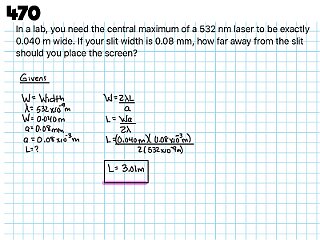 470
In a lab, you need the central maximum of a 532 nm laser to be exactly
0.040 m wide. If your slit width is 0.08 mm, how far away from the slit
should you place the screen?
Givens
W = Width
λ = 532x10⁻⁹m
W = 0.040m
a = 0.08mm
a = 0.08x10⁻³m
L = ?
W = 2λL
a
L = Wa
2λ
L = (0.040m)(0.08x10⁻³m)
2(532x10⁻⁹m)
L = 3.01m